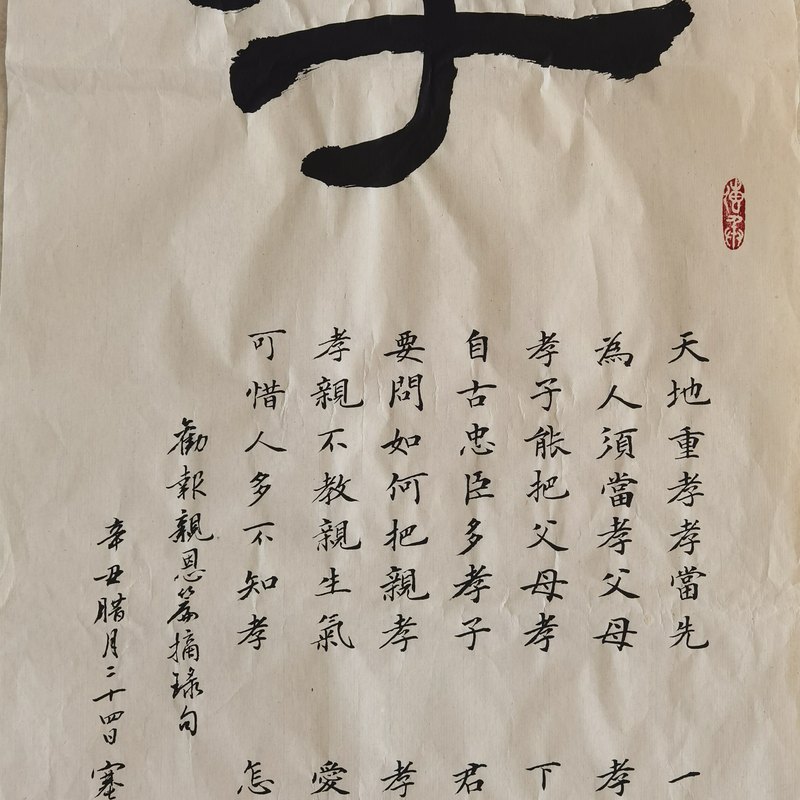 天地重孝孝當先
一
為人須當孝父母
孝
孝子能把父母孝
下
自古忠臣多孝子
君
要問如何把親孝
孝
孝親不教親生氣
愛
可惜人多不知孝
怎
勸報親恩篇摘録句
辛丑腊月二十四日